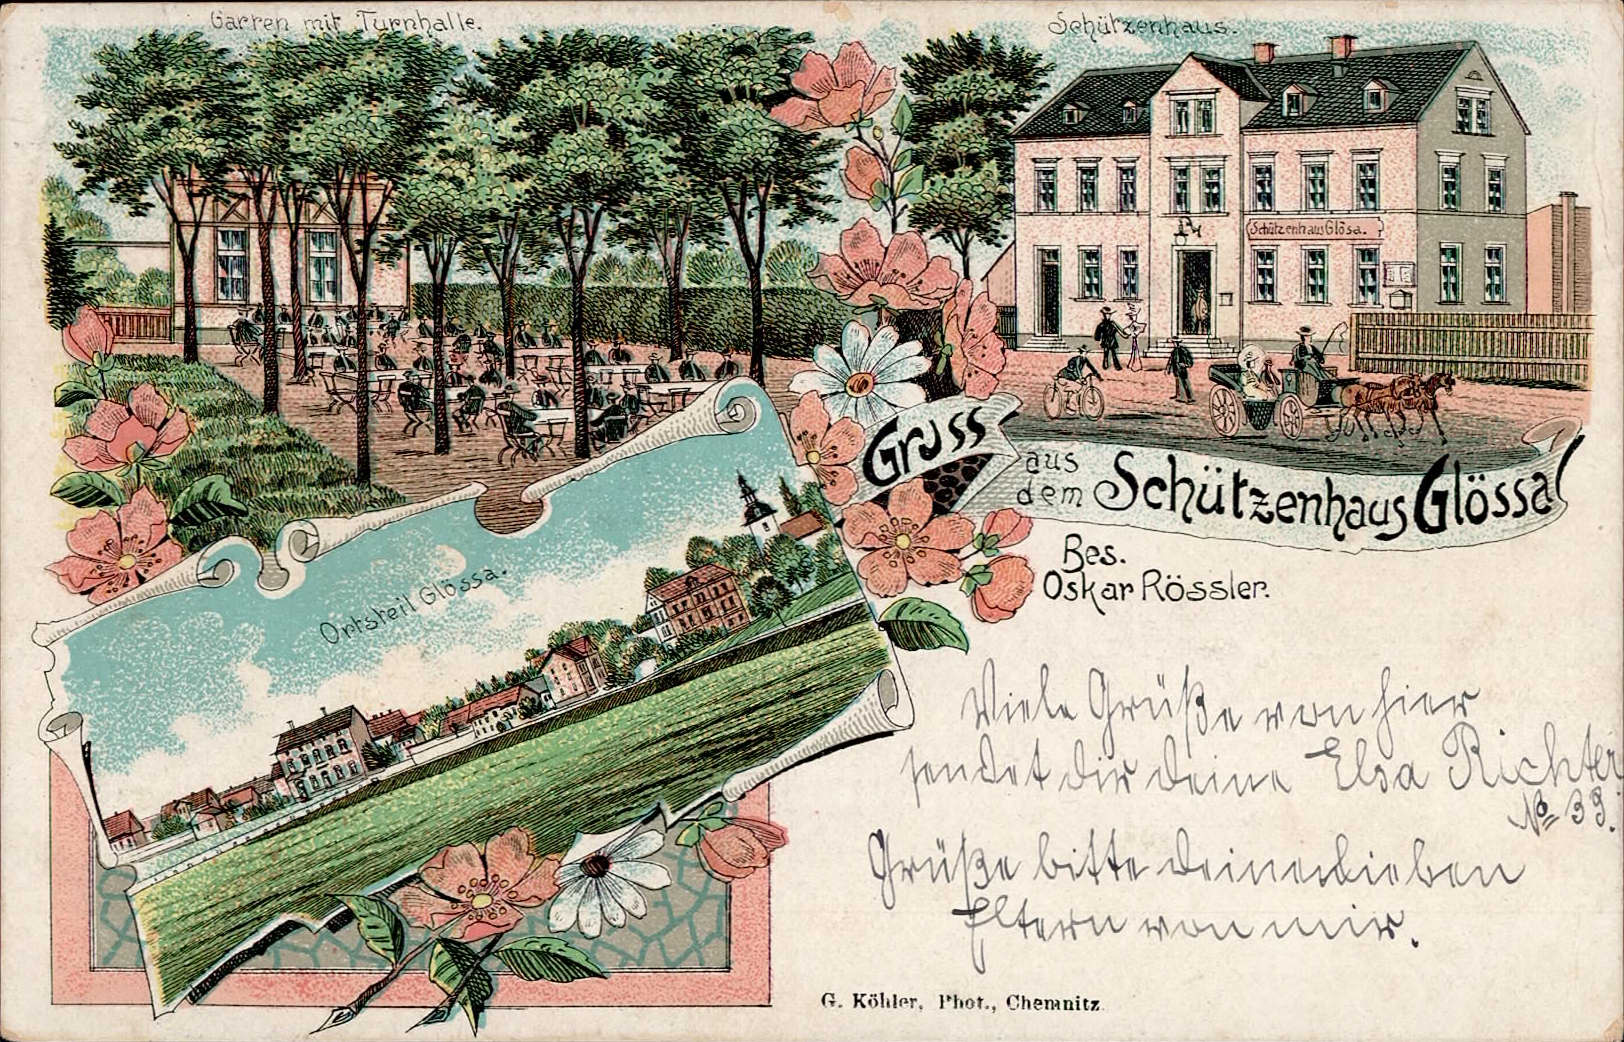 Garten mit Turnhalle.
Schützenhaus.
Schützenhaus Glösa.
Gruss
aus
dem Schützenhaus Glössa
Bes.
Oskar Rössler.
Ortsteil Glössa.
Viele Grüße von hier
sendet dir deine Elsa Richter
No 39.
Grüße bitte deine lieben
Eltern von mir.
G. Köhler, Phot., Chemnitz